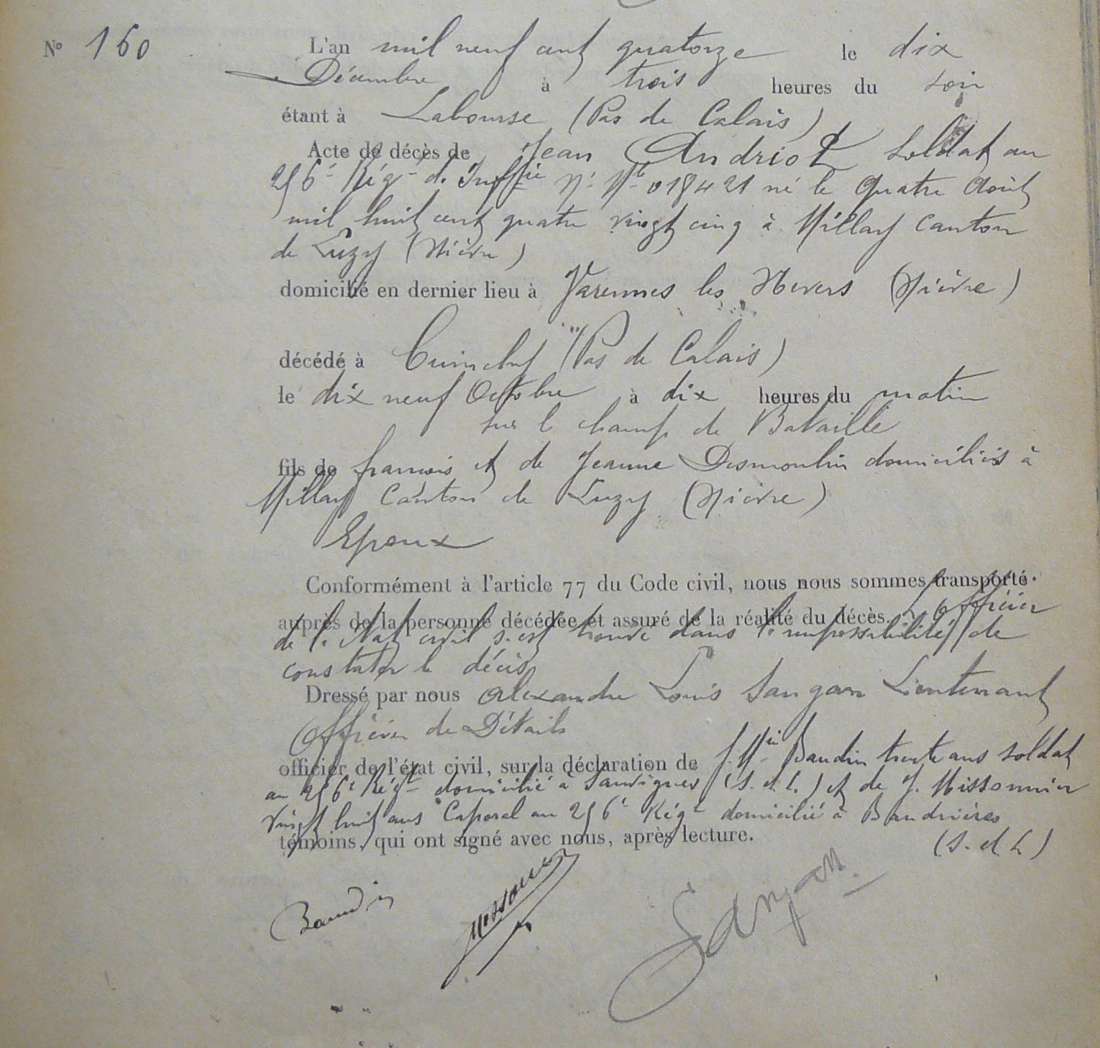 N° 160
L'an mil neuf cent quatorze le dix
Décembre à trois heures du soir
étant à Labourse (Pas de Calais)
Acte de décès de Jean Andriot soldat au
256e Rég. d. Inftie N° Mle 018421 né le Quatre Août
mil huit cent quatre vingt cinq à Millay Canton
de Luzy (Nièvre)
domicilié en dernier lieu à Varennes les Nevers (Nièvre)
décédé à Cuinchy (Pas de Calais)
le dix neuf Octobre à dix heures du matin
sur le champ de Bataille
fils de francois et de Jeanne Desmoulin domiciliés à
Millay Canton de Luzy (Nièvre)
Epoux
Conformément à l'article 77 du Code civil, nous nous sommes transporté
auprès de la personne décédée et assuré de la réalité du décès. L'officier
de l'Etat civil s'est trouvé dans l'impossibilité de
constater le décès
Dressé par nous Alexandre Louis Sangarn Lieutenant
Officier de Détails
officier de l'état civil, sur la déclaration de Baudin trente ans soldat
au 256e Régt domicilié à Sauvignes (S. et L.) et de J. Missonnier
Vingt huit ans Caporal au 256e Rég. domicilié à Baudrières
témoins, qui ont signé avec nous, après lecture. (S. et L)
Baudin